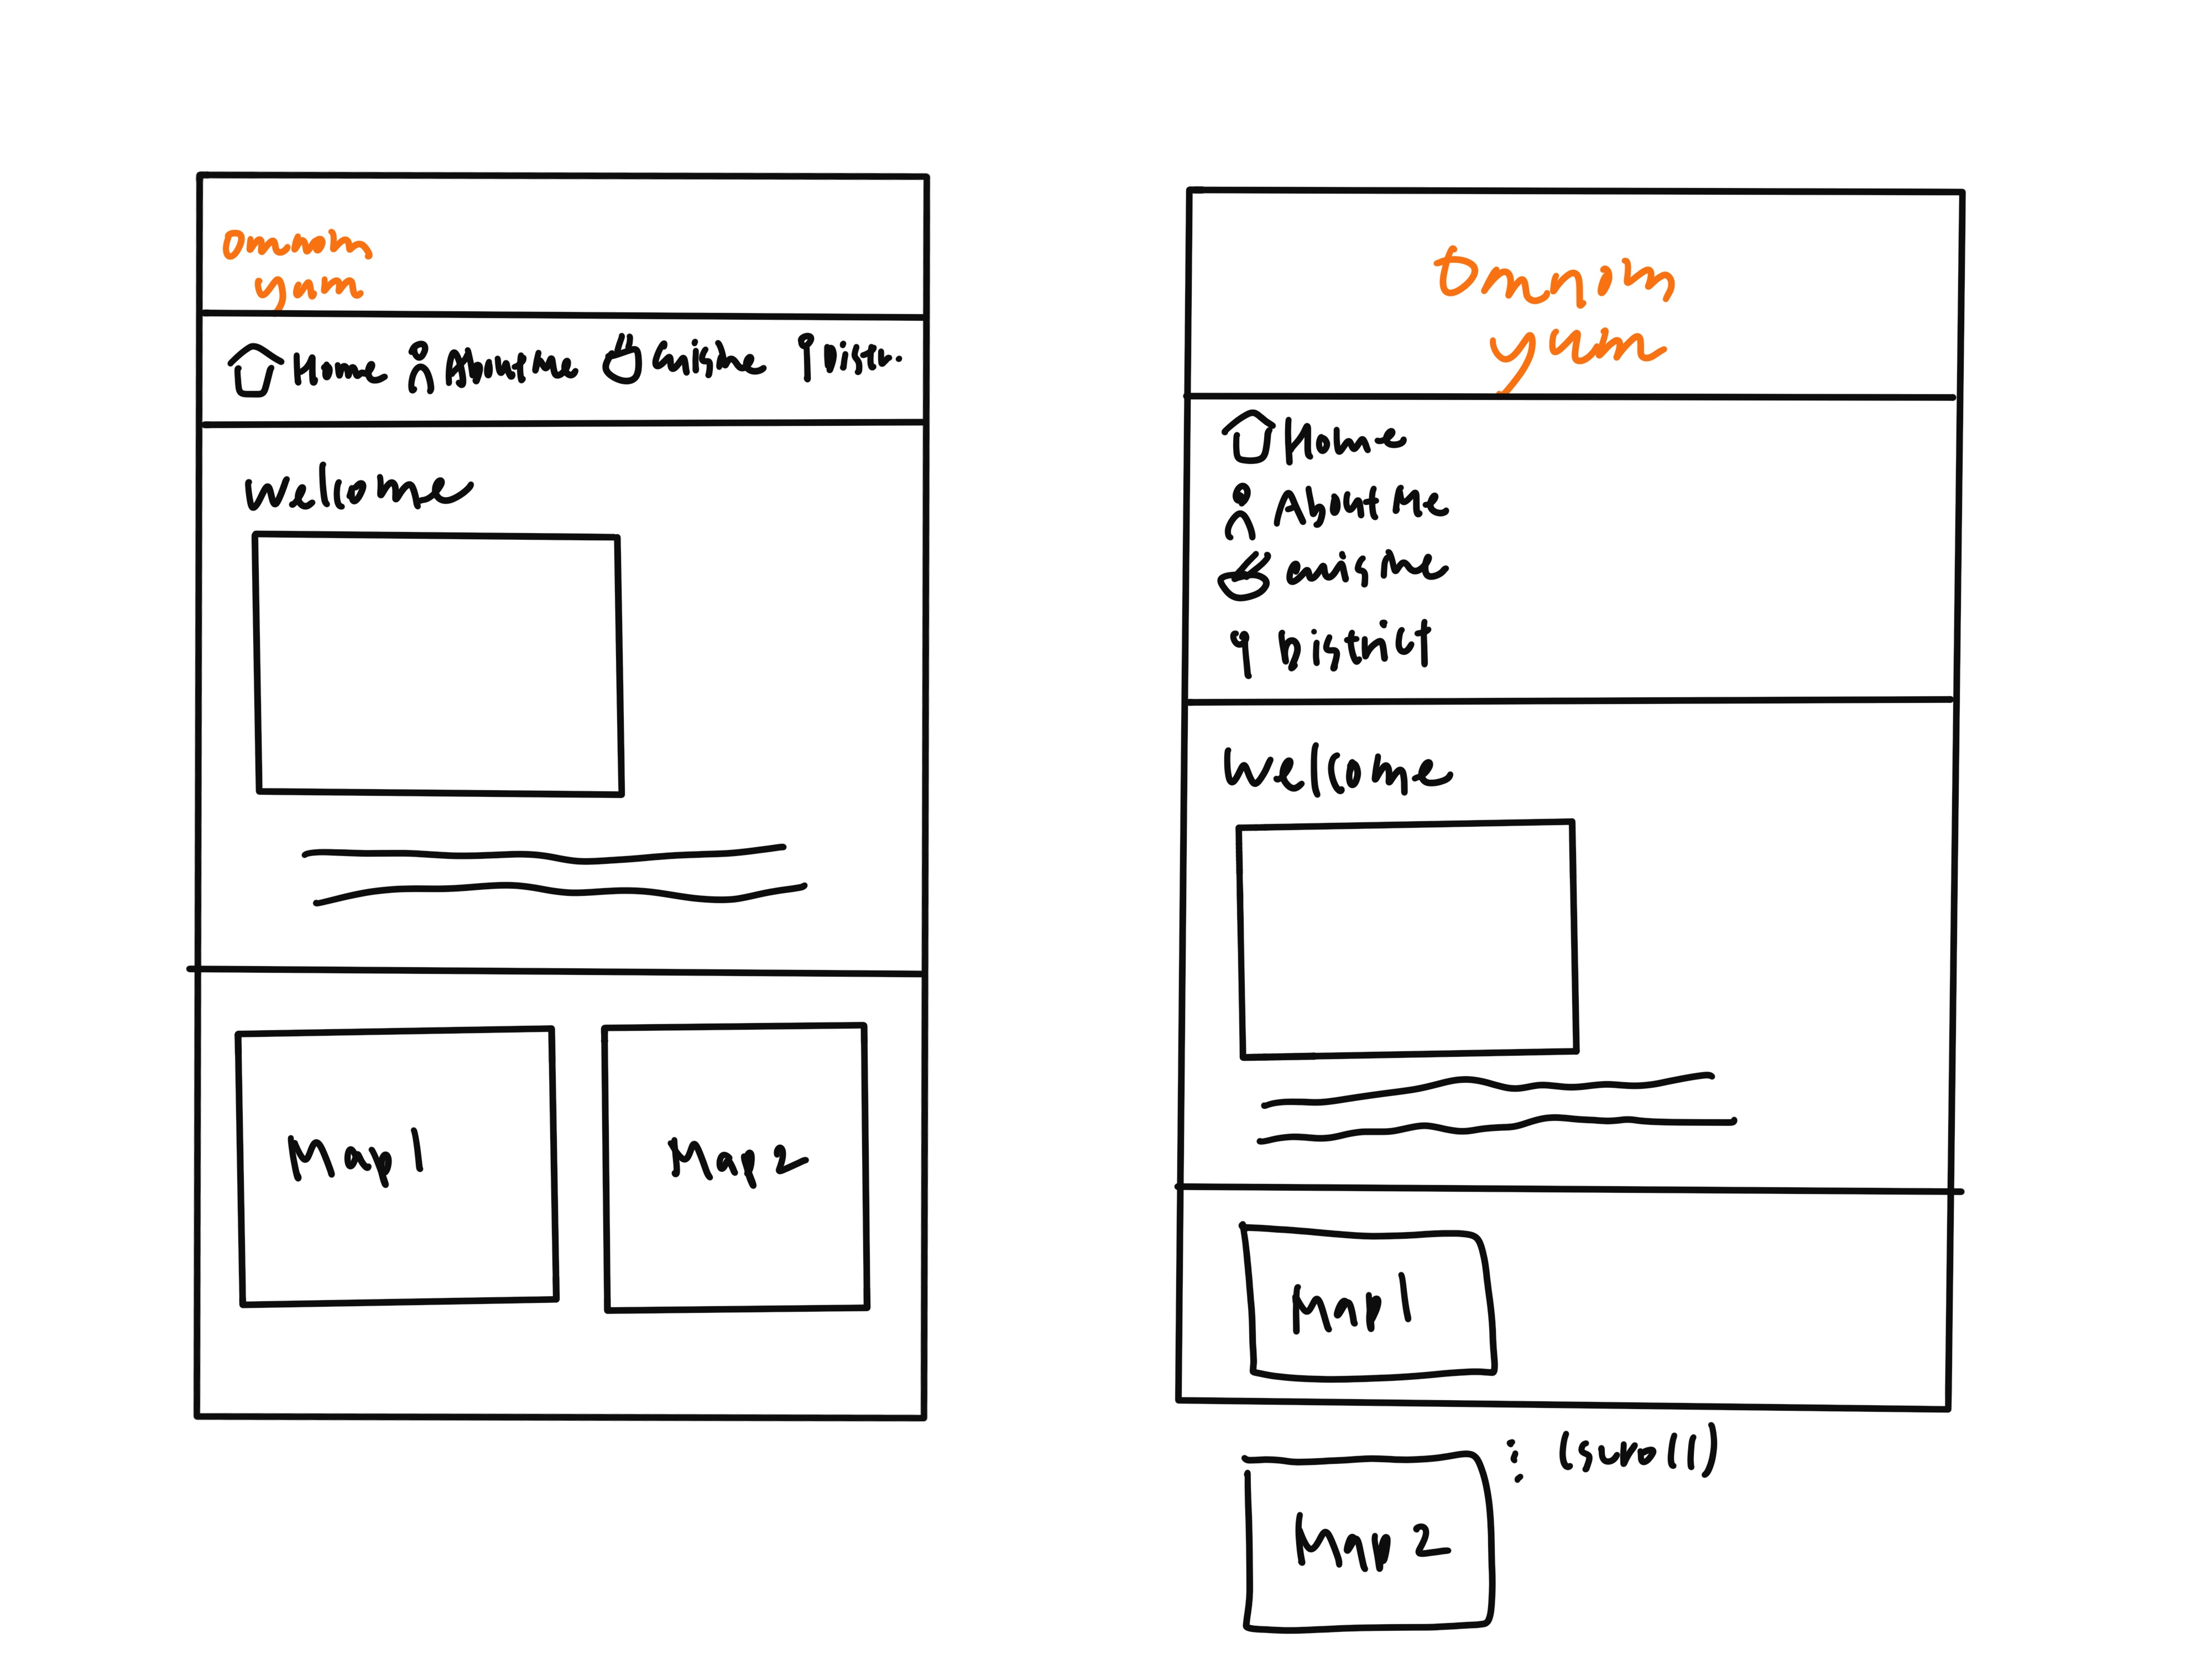 omnom
yum
Home About me Cuisine Distr..
Welcome
Map 1
Map 2
Omnom
yum
Home
About Me
cuisine
District
Welcome
Map 1
: (scroll)
Map 2